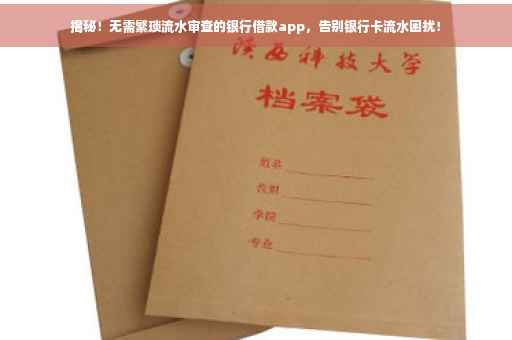 揭秘！无需繁琐流水审查的银行借款app，告别银行卡流水困扰！
陕西科技大学
档案袋
姓名
性别
学院
专业